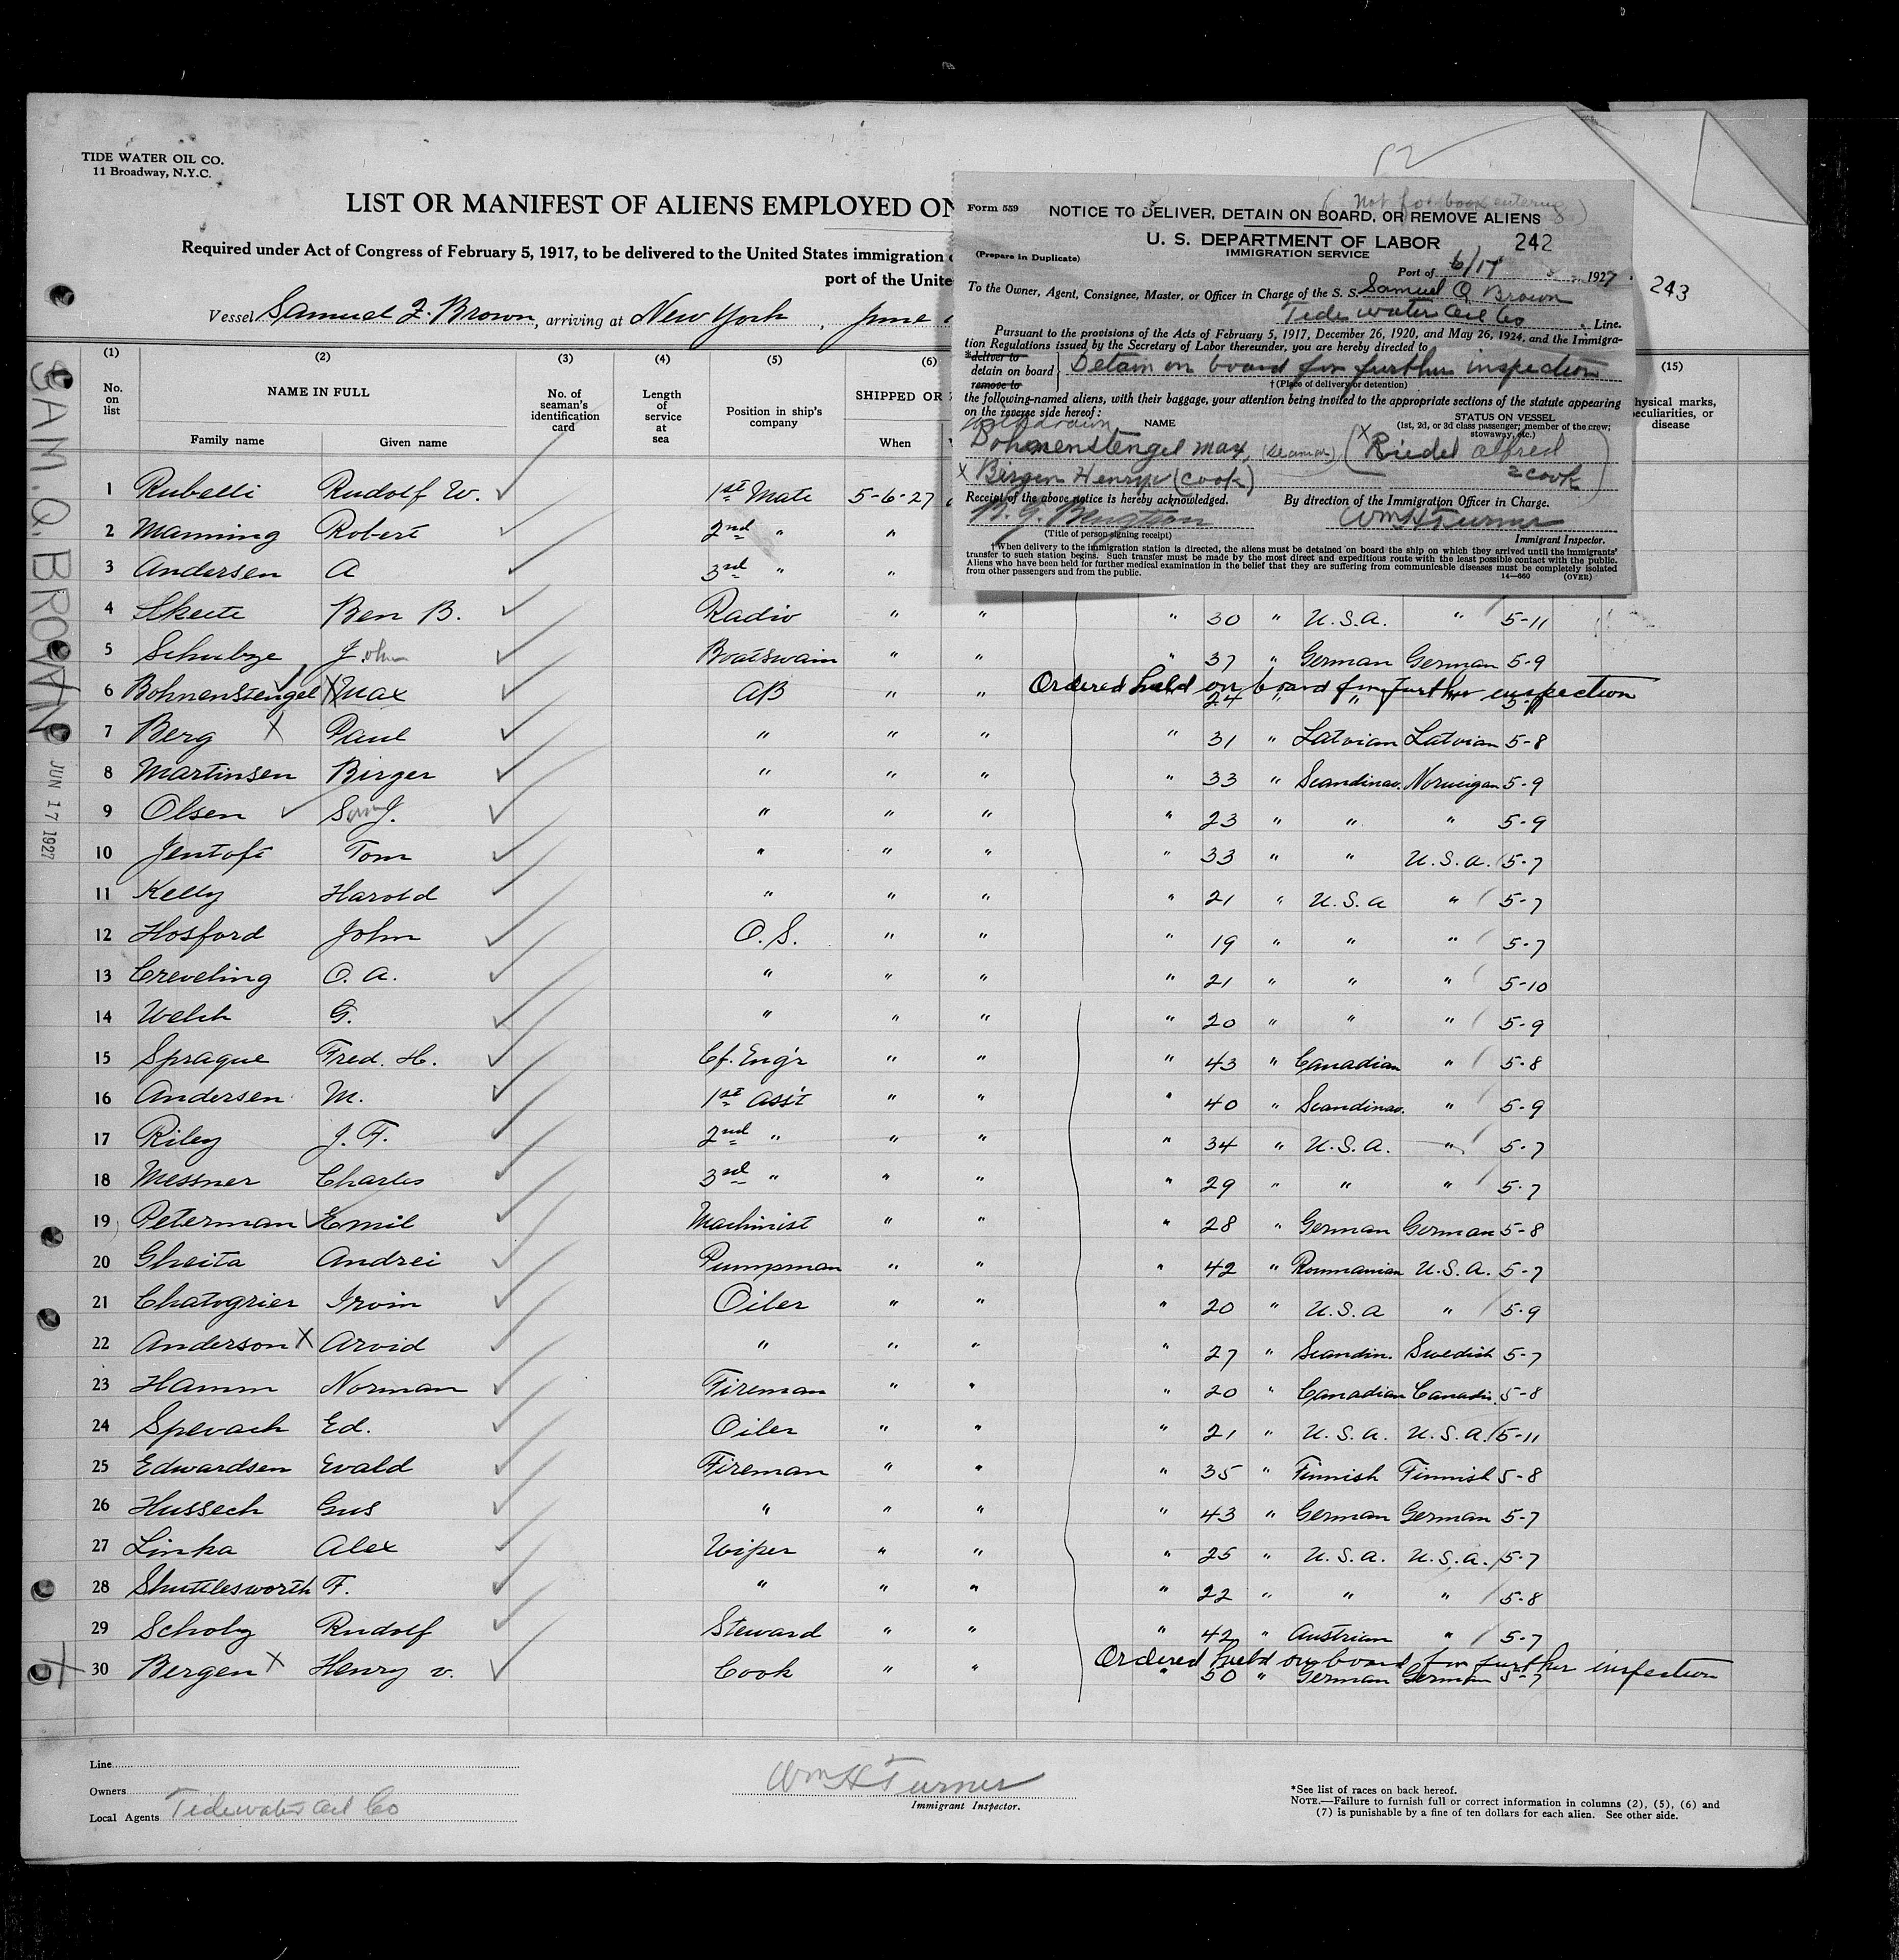 TIDE WATER OIL CO.
11 Broadway, N.Y.C.
LIST OR MANIFEST OF ALIENS EMPLOYED ON
Required under Act of Congress of February 5, 1917, to be delivered to the United States immigration
port of the Unite
Vessel Samuel Q. Brown, arriving at New York, June
Form 559
(Not for book entering)
NOTICE TO DELIVER, DETAIN ON BOARD, OR REMOVE ALIENS
U. S. DEPARTMENT OF LABOR 242
IMMIGRATION SERVICE
(Prepare in Duplicate)
Port of 6/17, 1927
243
To the Owner, Agent, Consignee, Master, or Officer in Charge of the S. S. Samuel Q Brown
Tide Water Oil Co Line.
Pursuant to the provisions of the Acts of February 5, 1917, December 26, 1920, and May 26, 1924, and the Immigra-
tion Regulations issued by the Secretary of Labor thereunder, you are hereby directed to
*deliver to
detain on board } Detain on board for further inspection
remove to
†(Place of delivery or detention)
the following-named aliens, with their baggage, your attention being invited to the appropriate sections of the statute appearing
on the reverse side hereof:
withdrawn NAME STATUS ON VESSEL
(1st, 2d, or 3d class passenger; member of the crew;
stowaway, etc.)
Bohnenstengel Max, (seaman) (X Riedel Alfred
X Bergen Henry v (cook) 2 cook)
Receipt of the above notice is hereby acknowledged. By direction of the Immigration Officer in Charge.
Wm H Turner
(Title of person signing receipt) Immigrant Inspector.
†When delivery to the immigration station is directed, the aliens must be detained on board the ship on which they arrived until the immigrants'
transfer to such station begins. Such transfer must be made by the most direct and expeditious route with the least possible contact with the public.
Aliens who have been held for further medical examination in the belief that they are suffering from communicable diseases must be completely isolated
from other passengers and from the public. 14—660 (OVER)
(1) (2) (3) (4) (5) (6) (15)
No. on list
NAME IN FULL
Family name Given name
No. of seaman's identification card
Length of service at sea
Position in ship's company
SHIPPED OR
When
hysical marks, peculiarities, or disease
SAM. Q. BROWN
JUN 17 1927
1 Rubelli Rudolf W. 1st Mate 5-6-27
2 Manning Robert 2nd " "
3 Andersen A 3rd " "
4 Skeete Ben B. Radio " " " 30 " U.S.A. " 5-11
5 Schulze John Boatswain " " " 37 " German German 5-9
Ordered held on board for further inspection
6 Bohnenstengel X Max AB " " 24 " "
7 Berg X Paul " " " " 31 " Latvian Latvian 5-8
8 Martinsen Birger " " " " 33 " Scandinav. Norweigan 5-9
9 Olsen " " " " 23 " " " 5-9
10 Jentoft Tom " " " " 33 " " U.S.A. 5-7
11 Kelly Harold " " " " 21 " U.S.A " 5-7
12 Hosford John O.S. " " " 19 " " " 5-7
13 Creveling O. A. " " " " 21 " " " 5-10
14 Welch G. " " " " 20 " " " 5-9
15 Sprague Fred. H. Cf. Eng'r " " " 43 " Canadian " 5-8
16 Andersen M. 1st Ass't " " " 40 " Scandinav. " 5-9
17 Riley J. F. 2nd " " " " 34 " U.S.A. " 5-7
18 Messner Charles 3rd " " " " 29 " " " 5-7
19 Peterman Emil Machinist " " " 28 " German German 5-8
20 Gheita Andrei Pumpman " " " 42 " Roumanian U.S.A. 5-7
21 Chatogrier Irvin Oiler " " " 20 " U.S.A " 5-9
22 Anderson X Arvid " " " " 27 " Scandin. Swedish 5-7
23 Hamm Norman Fireman " " " 20 " Canadian Canadin. 5-8
24 Spevach Ed. Oiler " " " 21 " U.S.A. U.S.A. 5-11
25 Edwardsen Evald Fireman " " " 35 " Finnish Finnish 5-8
26 Hussech Gus " " " " 43 " German German 5-7
27 Linka Alex Wiper " " " 25 " U.S.A. U.S.A. 5-7
28 Shuttlesworth F. " " " " 22 " " " 5-8
29 Scholz Rudolf Steward " " " 42 " Austrian " 5-7
Ordered held on board for further inspection
30 Bergen X Henry v. Cook " " " 50 " German German 5-7
Line
Owners
Local Agents Tidewater Oil Co
Wm H Turner
Immigrant Inspector.
*See list of races on back hereof.
NOTE.—Failure to furnish full or correct information in columns (2), (5), (6) and
(7) is punishable by a fine of ten dollars for each alien. See other side.